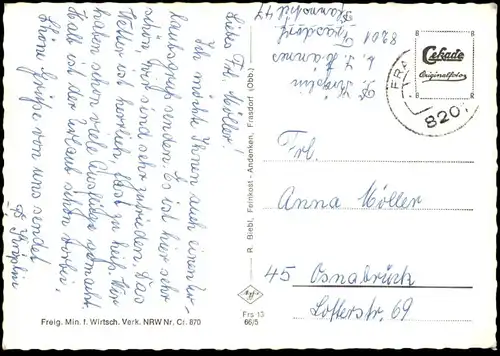 Liebes Frl. Möller!
Ich möchte Ihnen auch einen Ur-
laubsgruß senden. Es ist hier sehr
schön, wir sind sehr zufrieden. Das
Wetter ist herrlich, fast zu heiß. Wir
haben schon viele Ausflüge gemacht.
Bald ist der Urlaub schon vorbei.
Schöne Grüße von uns sendet
8201 Frasdorf
Frl.
Anna Möller
45 Osnabrück
Lotterstr. 69
Cekade
Originalfoto
FRA
820
R. Biebl, Feinkost - Andenken, Frasdorf (Obb.)
Agfa
Frs 13
66/5
Freig. Min. f. Wirtsch. Verk. NRW Nr. Cr. 870